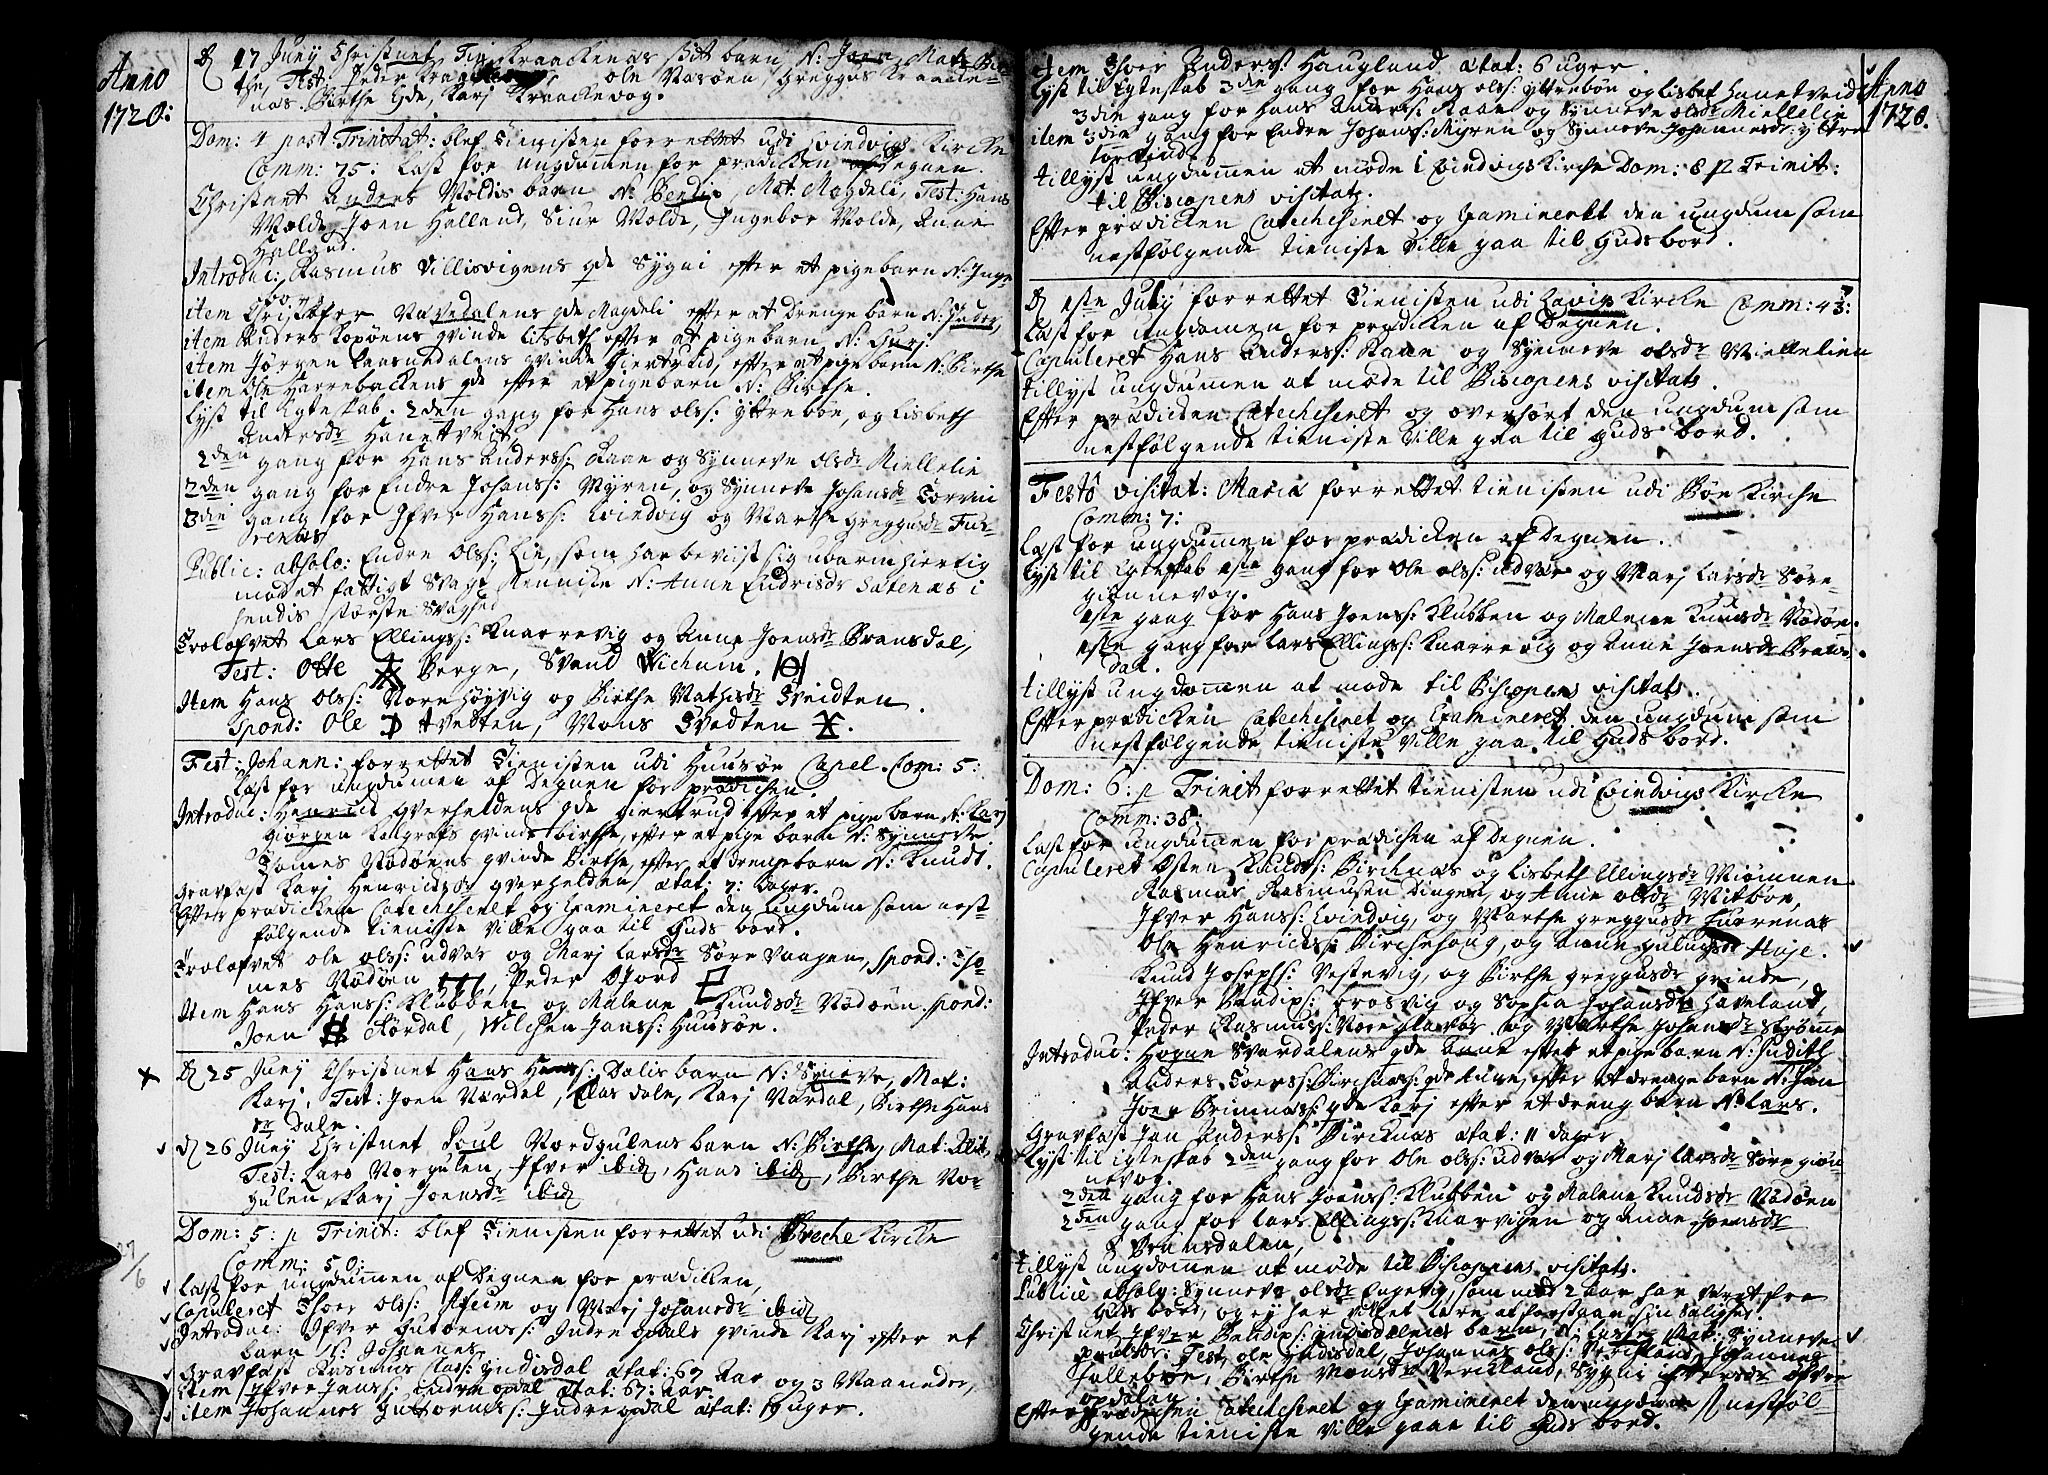 Anno
1720:
D 17 Juny Christnet Tie Kraackenæs sitt barn, N: Joen, Mat: Bir-
the, Test: Peder Ole Risøen, Greggus Kraacke-
næs, Birthe Yde, Karj Kraackevog.
Dom: 4 post Trinitat: blef Tienisten forrettet udi Evindvigs Kircke
Comm: 75: Læst for ungdummen for prædicken af Degnen.
Christnet Anders Woldis barn N: Bendix, Mat: Magdeli, Test: Hans
Wolde, Joen Halland, Siur Wolde, Ingebor Wolde, Anne
Halland.
Introduc: Rasmus Villisvigens qde Sygni efter et pigebarn N: Inge-
borj
item Christopher Nævedalens qde Magdeli efter et Drengebarn N: Peder,
item Anders Kopøens qvinde Lisbeth efter et pigebarn N: Guri
item Jørgen qvinde Giertrud, efter et pigebarn N: Birthe
item Ole Herrebackens qde efter et pigebarn N: Birthe.
Lyst til Egteskab. 2den gang for Hans Olss: Yttrebøe, og Lisbeth
Andersdr Hanetveit
2den gang for Hans Anderss: Raae og Synneve Olsdr Miellelie
2den gang for Endre Johanss: Myren, og Synneve Johansdr
3die gang for Ifver Hanss: Evindvig og Marthe Greggusdr Fur-
renæs
Public: absolv: Endre Olss: Lie, som har beviist sig ubarmhiertig
mod et fattigt svagt Menniske N: Anne Endrisdr Sætenæs i
hendis største svaghed
Trolofvet Lars Ellingss: Knarrevig og Anne Joensdr Bransdal,
Test: Otte Berge, Svend Wichum.
Item Hans Olss: Nore Høyvig og Birthe Mathisdr Tveidten.
Spond: Ole Tvedten, Mons Tvedten
Fest: Johann: forrettet Tienisten udi Huusøe Capel. Com: 5:
Læst for ungdumen af Degnen for prædicken.
Introduc: Henrick Qverheldens qde Giertrud efter et pigebarn N: Karj
Giørgen qvinde Birthe, efter et pigebarn N: Synneve
Tomes Nødøens qvinde Birthe, efter et drengebarn N: Knudt.
Gravfæst Karj Henricksdr Qverhelden, ætat: 7: dager.
Efter prædicken Catechiseret og Examineret den ungdum som nest-
følgende tieniste ville gaa til Guds bord.
Trolofvet Ole Olss: Udvær og Marj Larsdr Søre Vaagen, Spond: Tho-
mes Nødøen, Peder Dford
Item Hans Hanss: Klubben og Malene Knudsdr Nødøen, Spond:
Joen Rørdal, Wilchen Janss: Huusøe.
D 25 Juny Christnet Hans Hanss: Dalis barn N: Syneve, Mat:
Karj, Test: Joen Nærdal, Elias Dale, Karj Nærdal, Birthe Hans
dr Dale.
D 26 Juny Christnet Poul Nordgulens barn N: Birthe, Mat:
Test: Lars Norgulen, Ifver ibid, Hans ibid, Birthe Nor-
gulen Karj Joensdr ibid
Dom: 5: p Trinit: blef Tienisten forrettet udi Breche Kircke
Comm: 50:
Læst for ungdummen af Degnen for prædicken,
Copuleret Thoer Olss: og Marj Johansdr ibid
Introduc: Ifver Guttormss: Indre Opdals qvinde Karj efter et
barn N: Johannes
Gravfæst Rasmus Clas: Yndisdal ætat: 67 Aar og 3 Maaneder,
item Ifver Janss: Indre Opdal ætat: 67: Aar.
item Johannes Guttormss: Indre Opdal ætat: uger.
27/6
item Thoer Anders: Haugland ætat: 6 uger.
Lyst til Egteskab 3die gang for Hans Olss: Yttrebøe og Lisbet Hanetveid
3die gang for Hans Anderss: Raae og Synneve Olsdr Miellelie
item 3die gang for Endre Johanss: Myren og Synneve Johannesdr Yttre
Tillyst ungdummen at møde i Evindvigs Kirche Dom: 8 p Trinit:
til Biscopens visitats.
Efter prædicken Catechiseret og Examineret den ungdum som
nestfølgende tieniste ville gaa til Guds bord.
Anno
1720.
D 1ste July forrettet Tienisten udi Lavigs Kircke Comm: 43:
Læst for ungdomen for prædicken af Degnen.
Copuleret Hans Anderss: Raae og Synneve Olsdr Miellelien
Tillyst ungdumen at møde til Biscopens visitats.
Efter prædicken Catechiseret og overhørt den ungdum som
nestfølgende tieniste ville gaa til Guds bord.
Festô visitat: Mariæ forrettet tienisten udi Bøe Kirche
Comm: 7:
Læst for ungdumen for prædicken af Degnen.
Lyst til Egteskab 1ste gang for Ole Olss: Udvær og Marj Larsdr Søre
giønnevog.
1ste gang for Hans Joenss: Klubben og Malene Knudsdr Nødøe.
1ste gang for Lars Ellingss: Knarrevig og Anne Joensdr Brans-
dal.
Tillyst ungdomen at møde til Biscopens visitats.
Efter prædicken Catechiseret og Examineret den ungdum som
nestfølgende tieniste ville gaa til Guds bord.
Dom: 6: p Trinit forrettet tienisten udi Evindvigs Kircke
Comm: 38:
Læst for ungdummen for prædicken af Degnen.
Copuleret Østen Knudts: Birchnæs og Lisbeth Ellingsdr Miømnen
Rasmus Rasmusen Dingen og Anne Olsdr Mitbøe,
Ifver Hanss: Evindvig, og Marthe Greggusdr Furrenæs
Ole Henrichss: Kirchehoug, og Anne Høje.
Knud Josephs: Vestevig, og Birthe Greggusdr Grinde,
Ifver Bendixs: Crosvig og Sophia Johansdr Haveland,
Peder Rasmuss: Nore og Marthe Johansdr Strømme
Introduc: Hogne Svardalens qde Anne efter et pigebarn N: Judith
Anders Toerss: Birchnæs: qde Anne, efter et drengebarn N: Jan
Joen Brimnæs: qde Karj efter et drengbarn N: Lars.
Gravfæst Jan Anderss: Bircknæs ætat: 11 dager
Lyst til Egteskab 2den gang for Ole Olss: Udvær og Marj Larsdr Søre giøn-
nevog.
2den gang for Hans Joenss: Klubben og Malene Knudsdr Nødøen
2den gang for Lars Ellingss: Knarvigen og Anne Joensdr
Brunsdalen,
Tillyst ungdomen at møde til Biscopens visitats.
Publice absolv: Synneve Olsdr Engevig, som med 2 aar har været fra
Guds bord, og ej har villet lære at forstaae sin Salighed.
Christnet Ifver Bendixs: Yndisdalens barn, N: Lasse, Mat: Synneve
Test: Ole Yndisdal, Johannes Olss: Verckland, Johannes
Hallebøe, Birthe Monsdr Verckland, Sygni Ifversdr Øfre
opdalen.
Efter prædicken Catechiseret og Examineret den ungdum nestføl-
gende tieniste ville gaae til Guds bord.